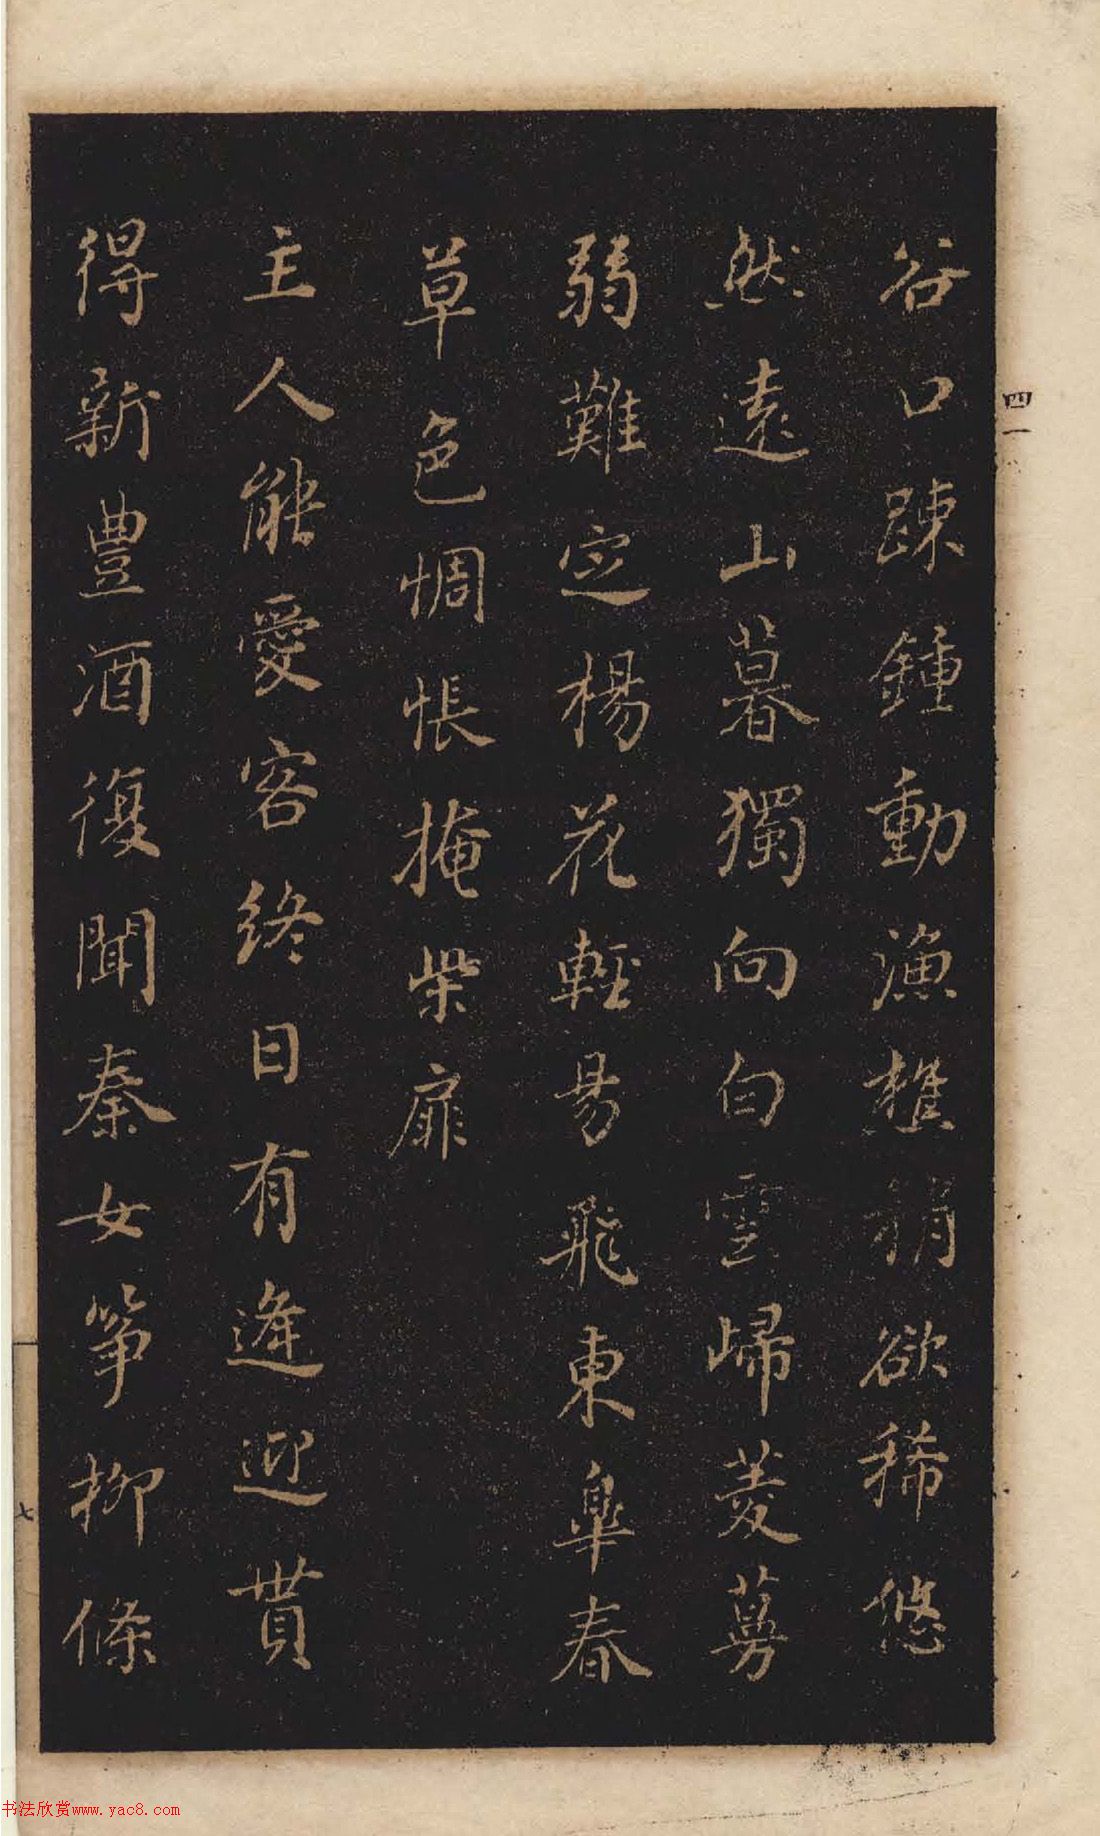 四一
谷口踈鍾動漁樵稍欲稀悠
然遠山暮獨向白雲歸菱蔓
弱難定楊花輕易飛東皐春
草色惆悵掩柴扉
主人能愛客終日有逢迎貰
得新豐酒復聞秦女箏柳條
七
书法欣赏www.yac8.com